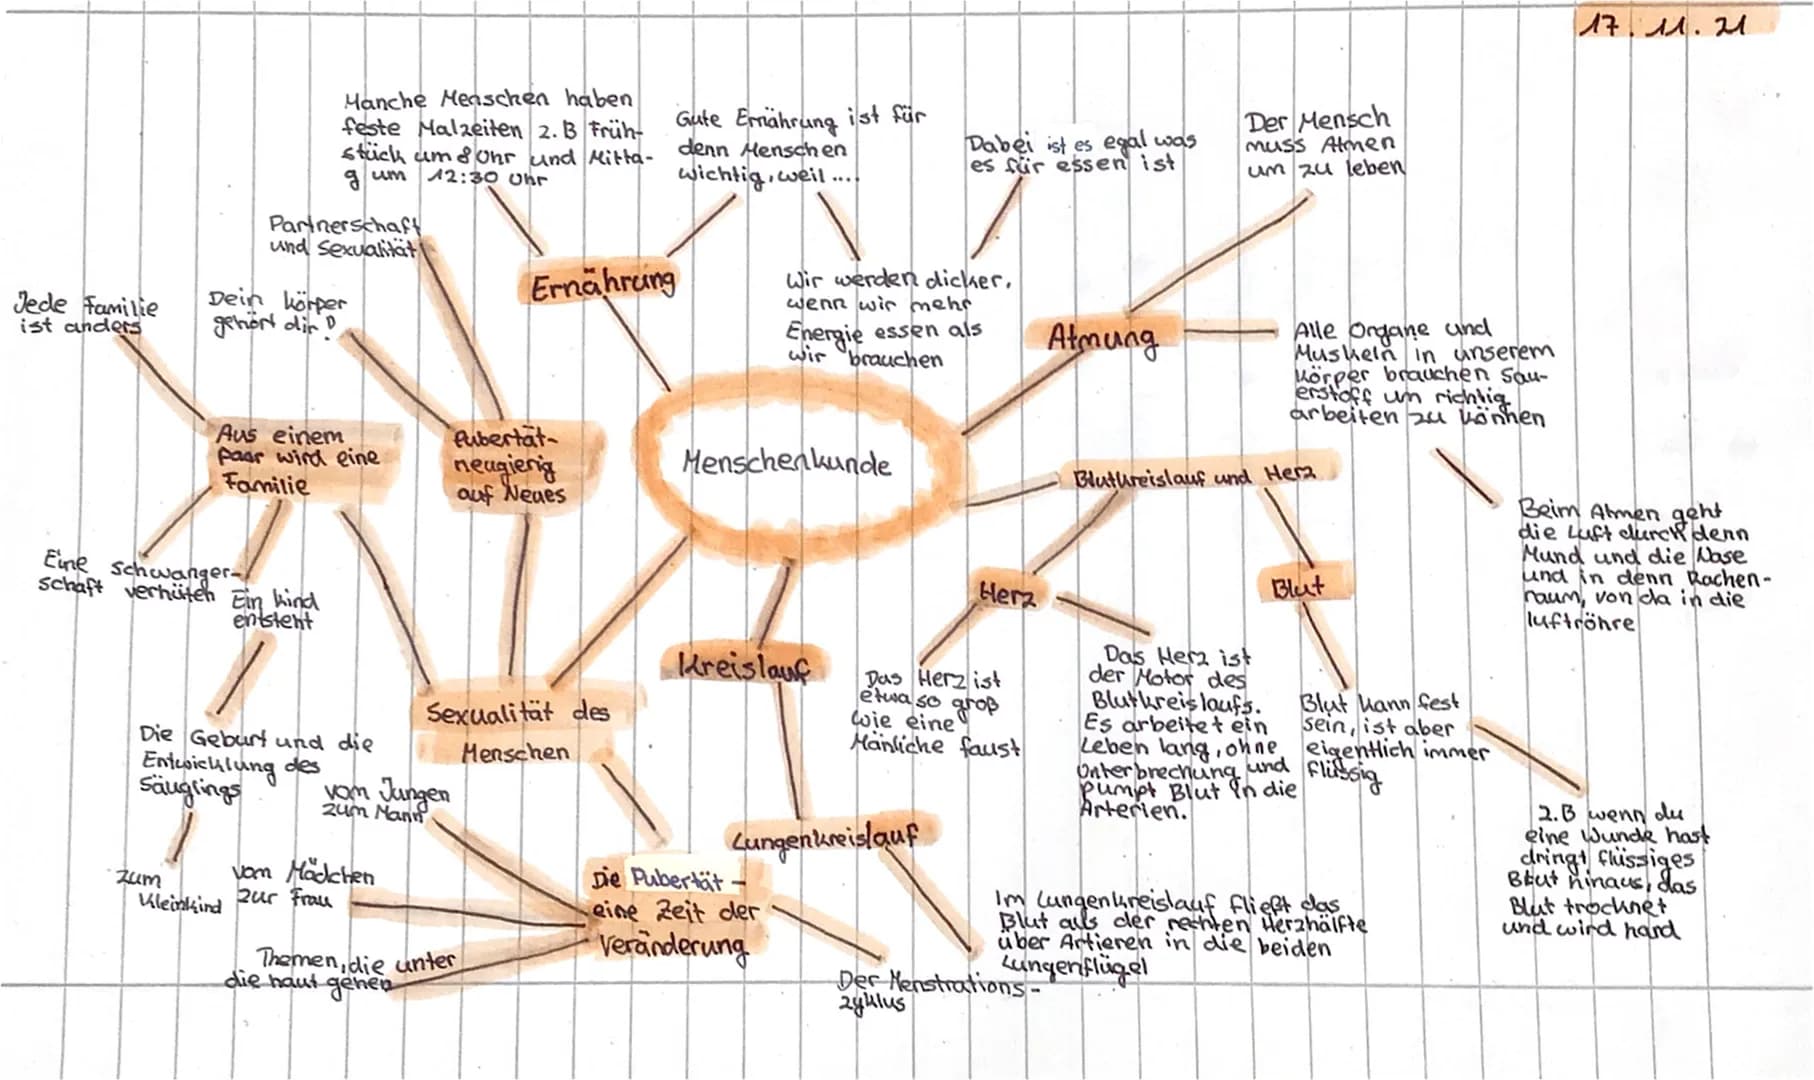 17.11.21
Manche Menschen haben
feste Malzeiten z.B Früh-
stück um 8 Uhr und Mitta-
g um 12:30 Uhr
Gute Ernährung ist für
denn Menschen
wichtig, weil ....
Dabei ist es egal was
es für essen ist
Der Mensch
muss Atmen
um zu leben
Partnerschaft
und Sexualität
Ernährung
Wir werden dicker,
wenn wir mehr
Energie essen als
wir brauchen
Jede Familie
ist anders
Dein Körper
gehört dir!
Atmung
Alle Organe und
Muskeln in unserem
Körper brauchen Sau-
erstoff um richtig
arbeiten zu können
Aus einem
paar wird eine
Familie
Pubertät-
neugierig
auf Neues
Menschenkunde
Blutkreislauf und Herz
Beim Atmen geht
die Luft durch denn
Mund und die Nase
und in denn Rachen-
raum, von da in die
luftröhre
Eine schwanger-
schaft verhüten
Ein kind
entsteht
Herz
Blut
Kreislauf
Das Herz ist
etwa so groß
wie eine
Mänliche faust
Das Herz ist
der Motor des
Blutkreislaufs.
Es arbeitet ein
Leben lang, ohne
Unterbrechung und
pumpt Blut in die
Arterien.
Blut kann fest
sein, ist aber
eigentlich immer
flüssig
Sexualität des
Menschen
Die Geburt und die
Entwicklung des
Säuglings
vom Jungen
zum Mann
z.B wenn du
eine Wunde hast
dringt flüssiges
Blut hinaus, das
Blut trocknet
und wird hard
Lungenkreislauf
zum
Kleinkind
vom Mädchen
zur Frau
Die Pubertät -
eine Zeit der
Veränderung
Im Lungenkreislauf fließt das
Blut aus der rechten Herzhälfte
über Artieren in die beiden
Lungenflügel
Themen, die unter
die haut gehen
Der Menstrations-
zyklus